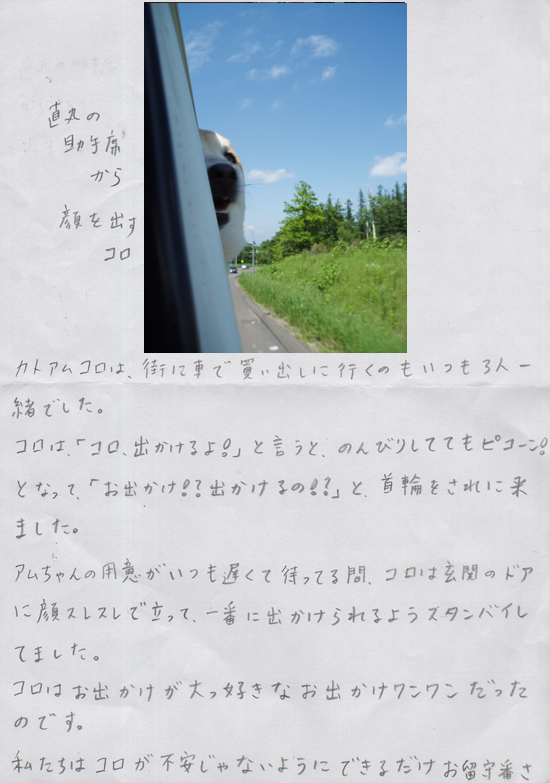 直丸の
助手席
から
顔を出す
コロ
カトアムコロは、街に車で買い出しに行くのもいつも3人一
緒でした。
コロは、「コロ、出かけるよ!」と言うと、のんびりしててもピコーン!
となって、「お出かけ!?出かけるの!?」と、首輪をされに来
ました。
アムちゃんの用意がいつも遅くて待ってる間、コロは玄関のドア
に顔スレスレで立って、一番に出かけられるようスタンバイし
てました。
コロはお出かけが大っ好きなお出かけワンワンだった
のです。
私たちはコロが不安じゃないようにできるだけお留守番さ